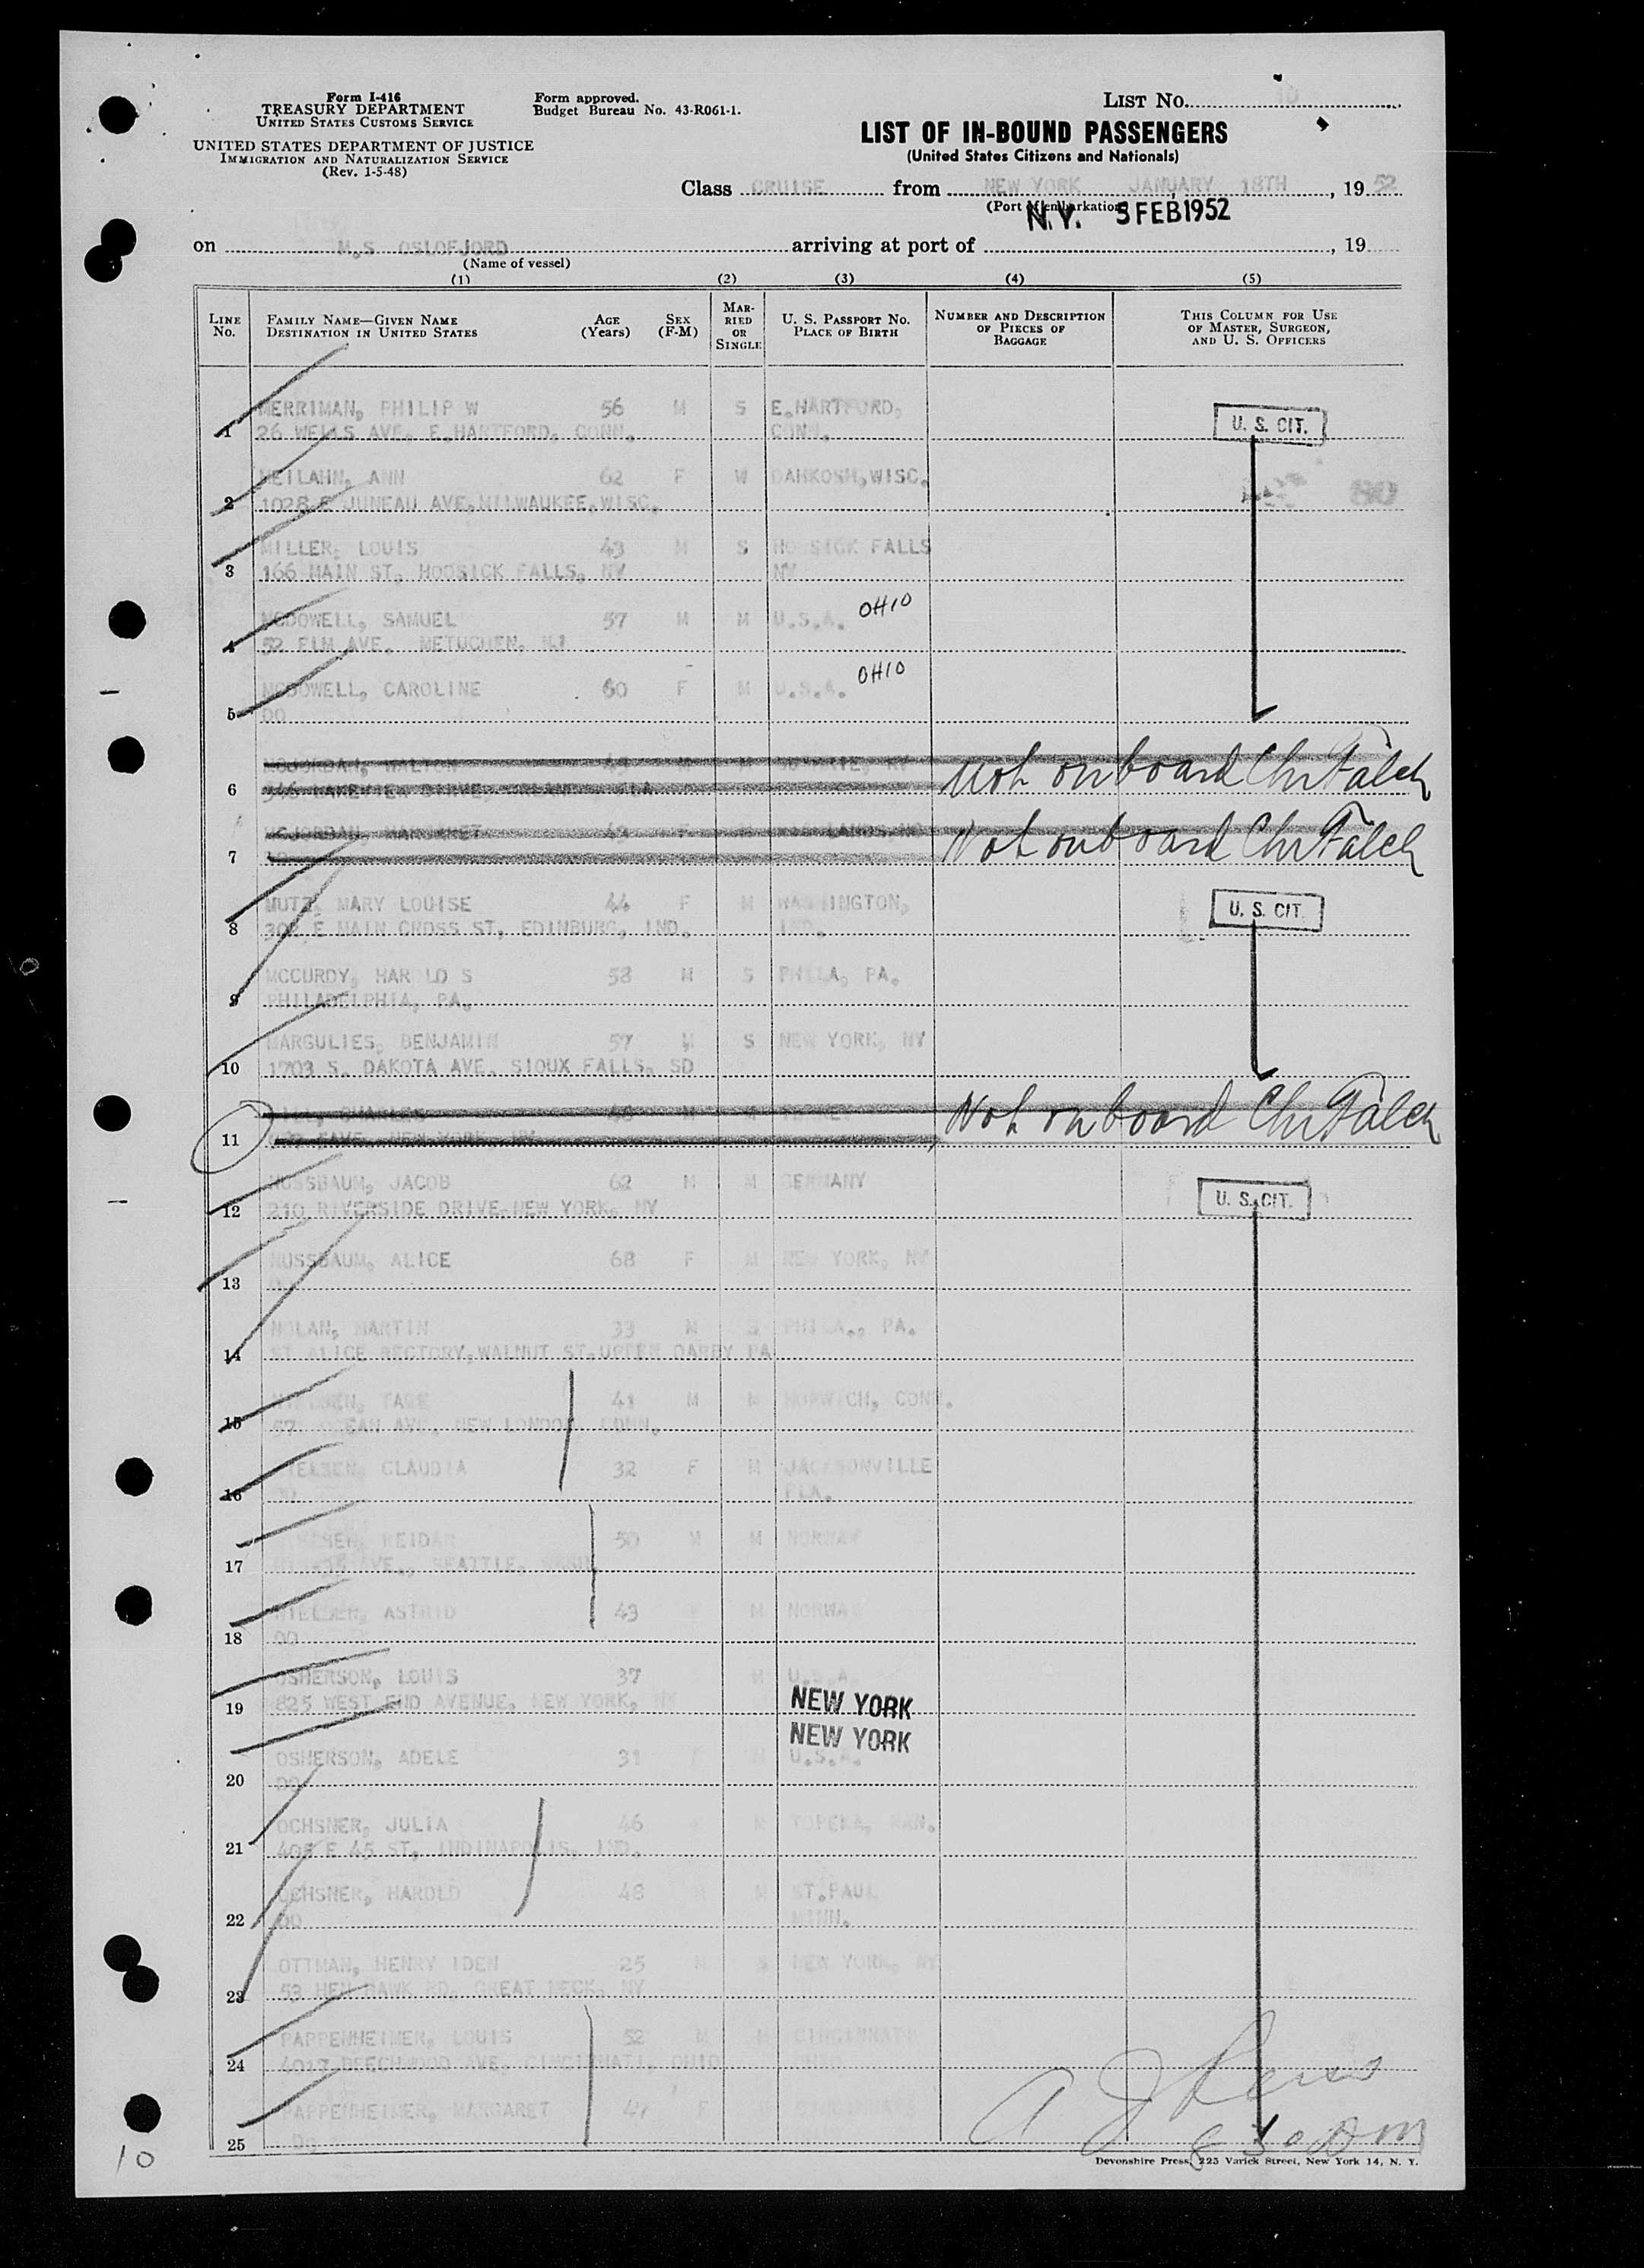 Form I-416
TREASURY DEPARTMENT
UNITED STATES CUSTOMS SERVICE
UNITED STATES DEPARTMENT OF JUSTICE
IMMIGRATION AND NATURALIZATION SERVICE
(Rev. 1-5-48)
Form approved.
Budget Bureau No. 43-R061-1.
LIST No. 10
LIST OF IN-BOUND PASSENGERS
(United States Citizens and Nationals)
Class CRUISE from NEW YORK JANUARY 18TH, 1952
(Port of embarkation)
N.Y. 5 FEB 1952
on M.S OSLOFJORD arriving at port of , 19
(Name of vessel)
(1) (2) (3) (4) (5)
LINE No. FAMILY NAME—GIVEN NAME DESTINATION IN UNITED STATES AGE (Years) SEX (F-M) MARRIED OR SINGLE U. S. PASSPORT No. PLACE OF BIRTH NUMBER AND DESCRIPTION OF PIECES OF BAGGAGE THIS COLUMN FOR USE OF MASTER, SURGEON, AND U. S. OFFICERS
MERRIMAN, PHILIP W 56 M S E.HARTFORD,
1 26 WELLS AVE, E.HARTFORD, CONN. CONN. U. S. CIT.
MEILAHN, ANN 62 F W DAHKOSH,WISC.
2 1028 E JUNEAU AVE,MILWAUKEE,WISC.
MILLER, LOUIS 43 M S HOOSICK FALLS
3 166 MAIN ST, HOOSICK FALLS, NY NY
MCDOWELL, SAMUEL 57 M M U.S.A. OHIO
4 52 ELM AVE, METUCHEN, NJ
MCDOWELL, CAROLINE 60 F M U.S.A. OHIO
5 DO
6 Not on board Chr Falch
MARGARET 49 F
7 Not on board Chr Falch
MUTZ, MARY LOUISE 44 F M WASHINGTON,
8 302 E MAIN CROSS ST, EDINBURG, IND. IND. U. S. CIT.
MCCURDY, HAROLD S 58 M S PHILA, PA.
9 PHILADELPHIA, PA.
MARGULIES, BENJAMIN 57 M S NEW YORK, NY
10 1703 S. DAKOTA AVE, SIOUX FALLS, SD
CHARLES
11 NEW YORK, NY Not on board Chr Falch
NUSSBAUM, JACOB 62 M M GERMANY
12 210 RIVERSIDE DRIVE,NEW YORK, NY U. S. CIT.
NUSSBAUM, ALICE 68 F M NEW YORK, NY
13
NOLAN, MARTIN 33 M S PHILA., PA.
14 ST ALICE RECTORY,WALNUT ST.UPPER DARBY PA
41 M M NORWICH, CONN.
15 OCEAN AVE, NEW LONDON, CONN.
NIELSEN, CLAUDIA 32 F M JACKSONVILLE
16 DO FLA.
REIDAR 50 M M NORWAY
17 AVE., SEATTLE, WASH.
NIELSEN, ASTRID 43 M NORWAY
18 DO
OSHERSON, LOUIS 37 M U.S.A.
19 825 WEST END AVENUE, NEW YORK, NY NEW YORK
NEW YORK
OSHERSON, ADELE 31 U.S.A.
20 DO
OCHSNER, JULIA 46 M TOPEKA, KAN.
21 E 45 ST, INDINAPOLIS, IND.
OCHSNER, HAROLD 48 M ST.PAUL
22 DO MINN.
OTTMAN, HENRY IDEN 25 M S NEW YORK, NY
23 53 HEN HAWK RD, GREAT NECK, NY
PAPPENHEIMER, LOUIS 52 M M CINCINNATI
24 4017 BEECHWOOD AVE, CINCINNATI, OHIO OHIO
PAPPENHEIMER, MARGARET 47 F
25 DO
Devonshire Press, 225 Varick Street, New York 14, N. Y.
10